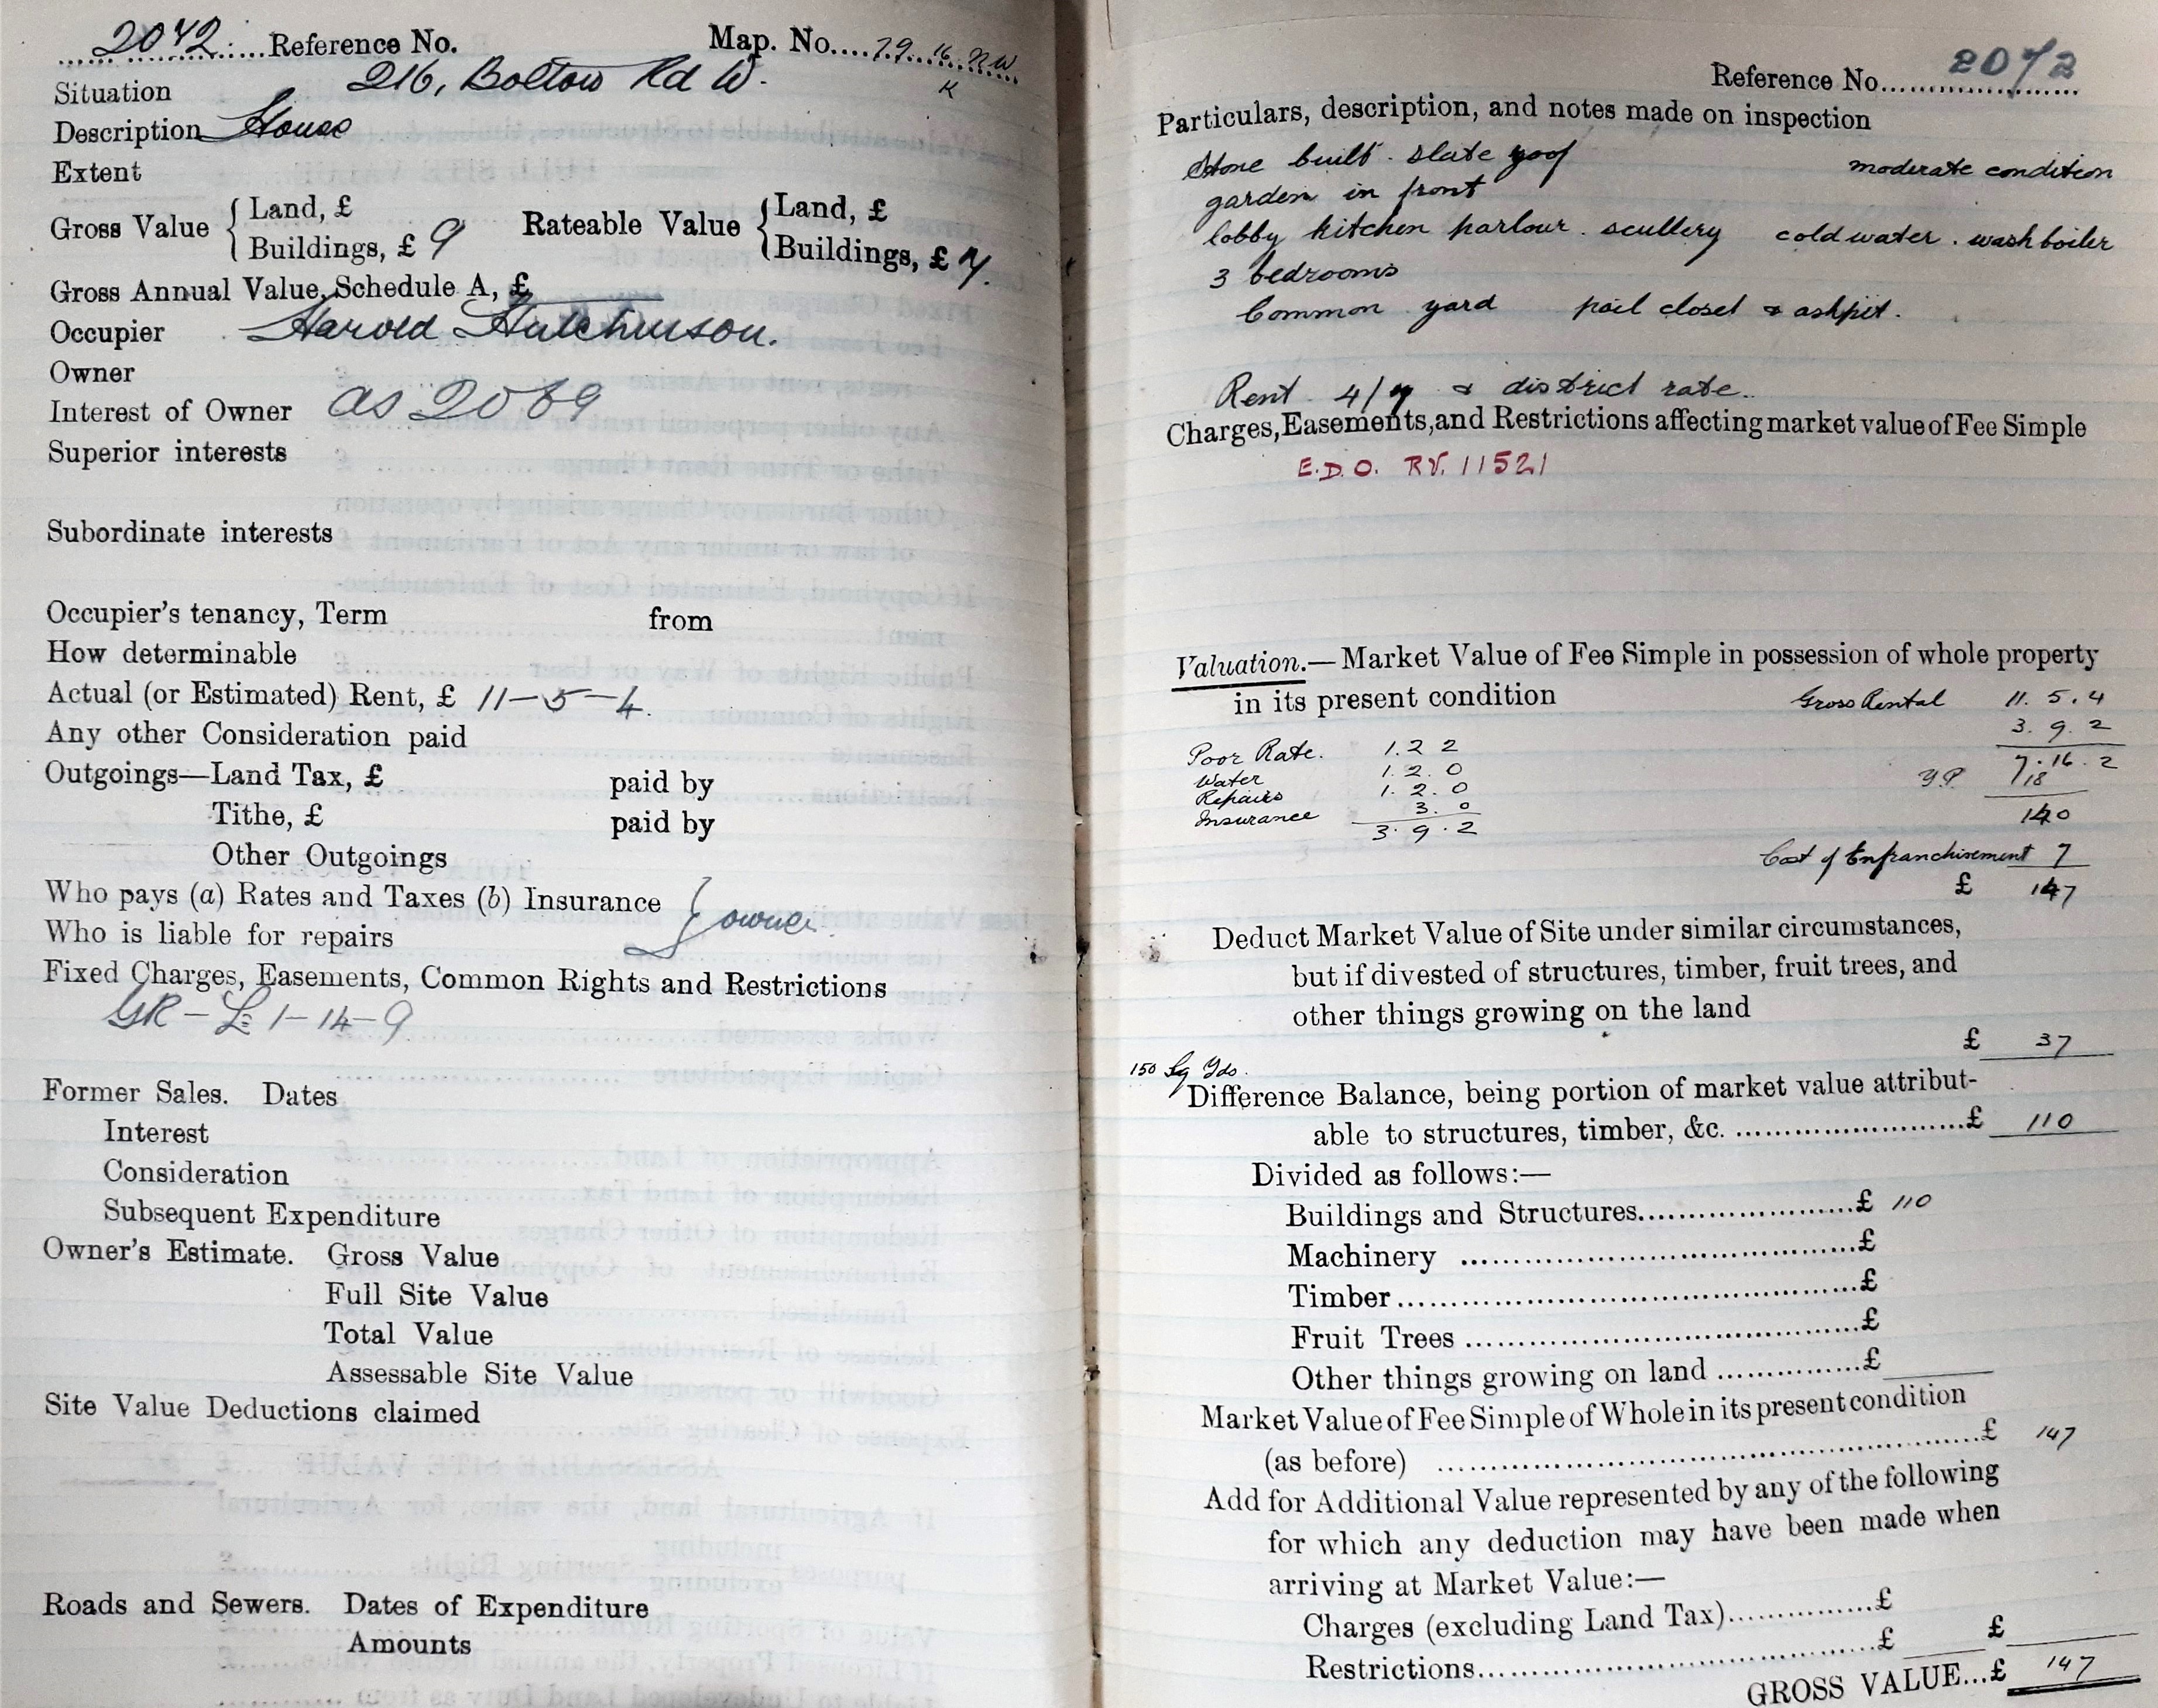 2072 Reference No. Map. No. 79. 16. N W
K
Situation 216, Bolton Rd W.
Description House
Extent
Gross Value { Land, £ Rateable Value { Land, £
Buildings, £ 9 Buildings, £ 7.
Gross Annual Value, Schedule A, £
Occupier Harold Hutchinson.
Owner
Interest of Owner as 2069
Superior interests
Subordinate interests
Occupier's tenancy, Term from
How determinable
Actual (or Estimated) Rent, £ 11-5-4.
Any other Consideration paid
Outgoings—Land Tax, £ paid by
Tithe, £ paid by
Other Outgoings
Who pays (a) Rates and Taxes (b) Insurance } owner
Who is liable for repairs
Fixed Charges, Easements, Common Rights and Restrictions
GR - £1-14-9
Former Sales. Dates
Interest
Consideration
Subsequent Expenditure
Owner's Estimate. Gross Value
Full Site Value
Total Value
Assessable Site Value
Site Value Deductions claimed
Roads and Sewers. Dates of Expenditure
Amounts
Reference No. 2072
Particulars, description, and notes made on inspection
Stone built. slate roof moderate condition
garden in front
lobby kitchen parlour. scullery cold water. wash boiler
3 bedrooms
Common yard pail closet & ashpit.
Rent 4/7 & district rate.
Charges, Easements, and Restrictions affecting market value of Fee Simple
E.D.O. RV. 11521
Valuation.—Market Value of Fee Simple in possession of whole property
in its present condition Gross Rental 11. 5. 4
3. 9. 2
Poor Rate. 1. 2 2 7. 16. 2
Water 1. 2. 0 YP 18
Repairs 1. 2. 0
Insurance 3. 0 140
3. 9. 2
Cost of Enfranchisement 7
£ 147
Deduct Market Value of Site under similar circumstances,
but if divested of structures, timber, fruit trees, and
other things growing on the land
£ 37
150 Sq Yds.
Difference Balance, being portion of market value attribut-
able to structures, timber, &c. £ 110
Divided as follows:—
Buildings and Structures £ 110
Machinery £
Timber £
Fruit Trees £
Other things growing on land £
Market Value of Fee Simple of Whole in its present condition
(as before) £ 147
Add for Additional Value represented by any of the following
for which any deduction may have been made when
arriving at Market Value:—
Charges (excluding Land Tax) £
Restrictions £ £
GROSS VALUE...£ 147